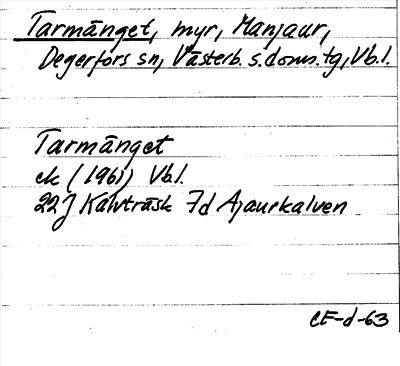 Tarmänget, myr, Manjaur,
Degerfors sn, Västerb. s. doms. tg, Vb.l.
Tarmänget
ek (1961) Vb.l.
22J Kalvträsk 7d Ajaurkalven
CE-d-63